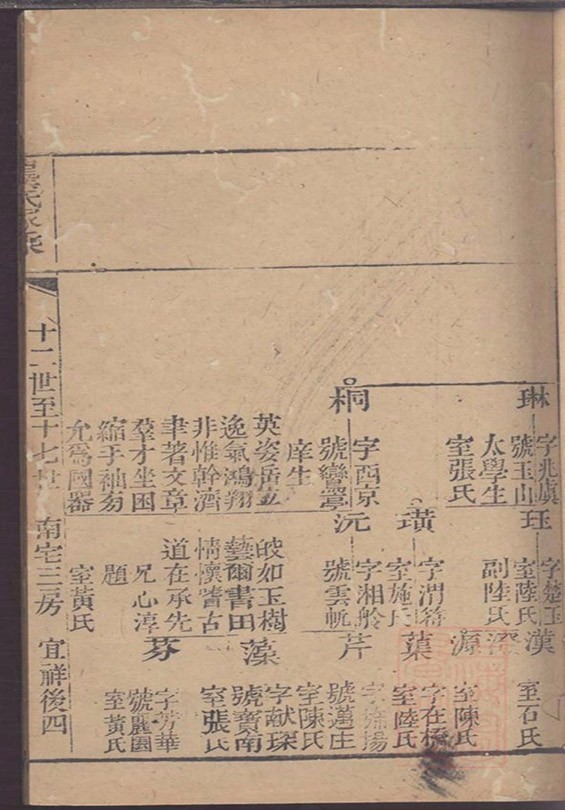 琳
字兆虞
號玉山
太學生
室張氏
珏
字楚玉
室陸氏
副陸氏
漢
室石氏
源
室陳氏
璜
字潤符
室施氏
葉
字在橋
室陸氏
桐
字西京
號嶧
庠生
英姿岳立
逸氣鴻翔
非惟幹濟
聿著文章
羣才坐困
縮手袖旁
允爲國器
沅
字湘舲
號雲帆
皎如玉樹
藝爾書田
情懷嗜古
道在承先
兄心淳
題
室黃氏
芹
揚
號蓮庄
室陳氏
藻
字献琛
號寶南
室張氏
芬
字芳華
號麗園
室黃氏
氏家乘
十二世至十七世
南宅三房
宜祥後四